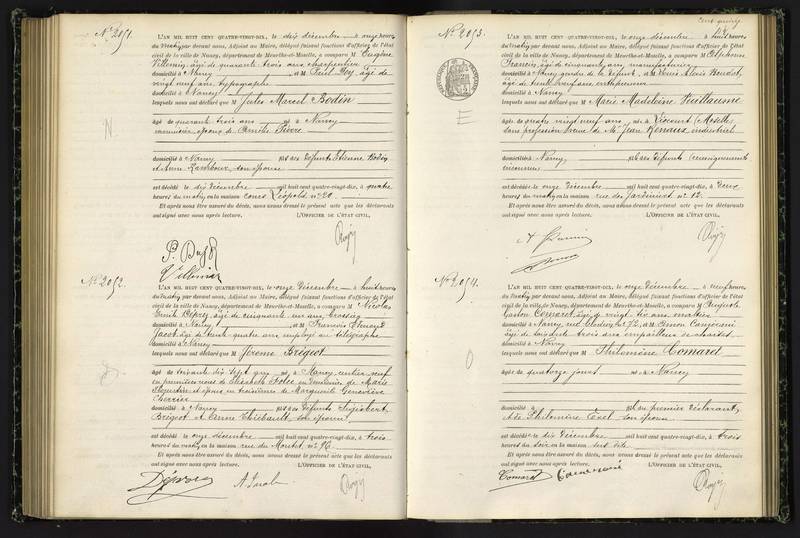 N° 2051.
L'AN MIL HUIT CENT QUATRE-VINGT-DIX, le dix décembre à onze heures
du matin, par devant nous, Adjoint au Maire, délégué faisant fonctions d'officier de l'état
civil de la ville de Nancy, département de Meurthe-et-Moselle, a comparu M Eugène
Villemin âgé de quarante trois ans, charpentier
domicilié à Nancy, et M Paul âgé de
vingt neuf ans, typographe
domicilié à Nancy
lesquels nous ont déclaré que M Jules Marcel Bodin
N
âgé de quarante trois ans né à Nancy
époux de Févre
domicilié à Nancy fils des défunts Etienne Bodin
et Anne son épouse
est décédé le dix décembre mil huit cent quatre-vingt-dix, à quatre
heures du matin en la maison cours Léopold n° 20
Et après nous être assuré du décès, nous avons dressé le présent acte que les déclarants
ont signé avec nous après lecture. L'OFFICIER DE L'ÉTAT CIVIL,
Villemin
N° 2052.
L'AN MIL HUIT CENT QUATRE-VINGT-DIX, le onze décembre à huit heures
du matin, par devant nous, Adjoint au Maire, délégué faisant fonctions d'officier de l'état
civil de la ville de Nancy, département de Meurthe-et-Moselle, a comparu M Nicolas
Emile âgé de cinquante un ans, brossier
domicilié à Nancy, et M François Edmond
Jacob âgé de trente quatre ans employé au télégraphe
domicilié à Nancy
lesquels nous ont déclaré que M Jérome Brégeot
âgé de soixante dix sept ans né à Nancy, rentier veuf
en premières noces de Elisabeth en deuxièmes de Marie
et époux en troisièmes de Marguerite Geneviève
domicilié à Nancy fils des défunts
Brégeot et Anne Thiébault, son épouse
est décédé le onze décembre mil huit cent quatre-vingt-dix, à trois
heures du matin en la maison rue du Montet n° 86
Et après nous être assuré du décès, nous avons dressé le présent acte que les déclarants
ont signé avec nous après lecture. L'OFFICIER DE L'ÉTAT CIVIL,
A. Jacob
N° 2053.
L'AN MIL HUIT CENT QUATRE-VINGT-DIX, le onze décembre à huit heures
du matin, par devant nous, Adjoint au Maire, délégué faisant fonctions d'officier de l'état
civil de la ville de Nancy, département de Meurthe-et-Moselle, a comparu M Alphonse
âgé de cinquante ans, manufacturier
domicilié à Nancy gendre de la défunte, et M Louis Alexis
âgé de trente neuf ans
domicilié à Nancy
lesquels nous ont déclaré que M Marie Madeleine
E
âgée de quatre vingt neuf ans née à (Moselle)
sans profession veuve de M Jean Renaux industriel
domiciliée à Nancy fille des défunts (renseignements
inconnus
est décédée le onze décembre mil huit cent quatre-vingt-dix, à deux
heures du matin en la maison rue des Jardiniers n° 12
Et après nous être assuré du décès, nous avons dressé le présent acte que les déclarants
ont signé avec nous après lecture. L'OFFICIER DE L'ÉTAT CIVIL,
N° 2054.
L'AN MIL HUIT CENT QUATRE-VINGT-DIX, le onze décembre à neuf heures
du matin, par devant nous, Adjoint au Maire, délégué faisant fonctions d'officier de l'état
civil de la ville de Nancy, département de Meurthe-et-Moselle, a comparu M
Gaston Comaret, âgé de vingt six ans
domicilié à Nancy, rue 72, et M Simon
âgé de soixante trois ans empailleur de chaises
domicilié à Nancy
lesquels nous ont déclaré que M Philomène Comaret
O
âgée de quatorze jours née à Nancy
domiciliée à fille du premier déclarant
et de Philomène son épouse
est décédée le dix décembre mil huit cent quatre-vingt-dix, à trois
heures du soir en la maison sus dite
Et après nous être assuré du décès, nous avons dressé le présent acte que les déclarants
ont signé avec nous après lecture. L'OFFICIER DE L'ÉTAT CIVIL,
Comaret